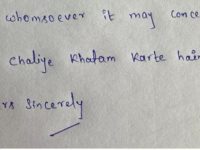 whomsoever it may conce
Chaliye Khatam Karte hain
rs Sincerely